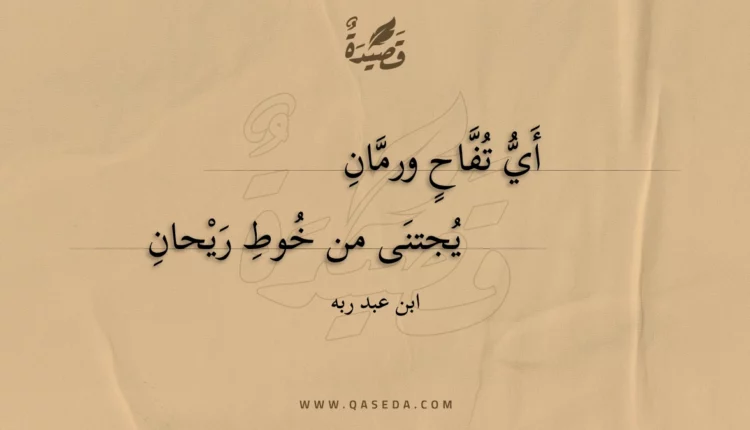 قَصِيْدَةٌ
أَيُّ تُفَّاحٍ ورمَّانِ
يُجتنَى من خُوطِ رَيْحانِ
ابن عبد ربه
WWW.QASEDA.COM